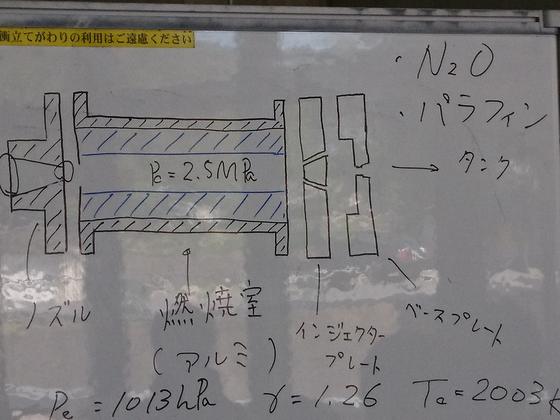 衝立てがわりの利用はご遠慮ください
・N₂O
・パラフィン
→ タンク
Pc = 2.5MPa
ノズル
燃焼室
(アルミ)
インジェクター
プレート
ベースプレート
Pe = 1013hPa γ = 1.26 Tc = 2003K